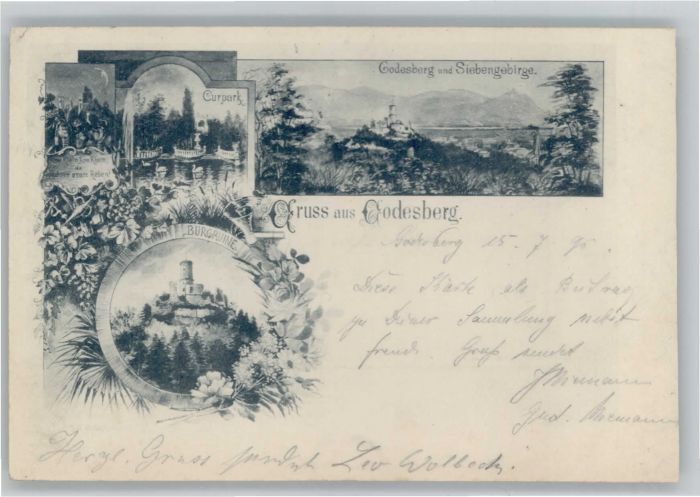 Godesberg und Siebengebirge.
Curpark.
Gruss aus Godesberg.
BURGRUINE.
Godesberg 15. 7. 96.
Diese Karte als Beitrag
zu Deiner Sammlung nebst
freundl. Gruß sendet
Herzl. Gruss sendet Leo Wolbeck.